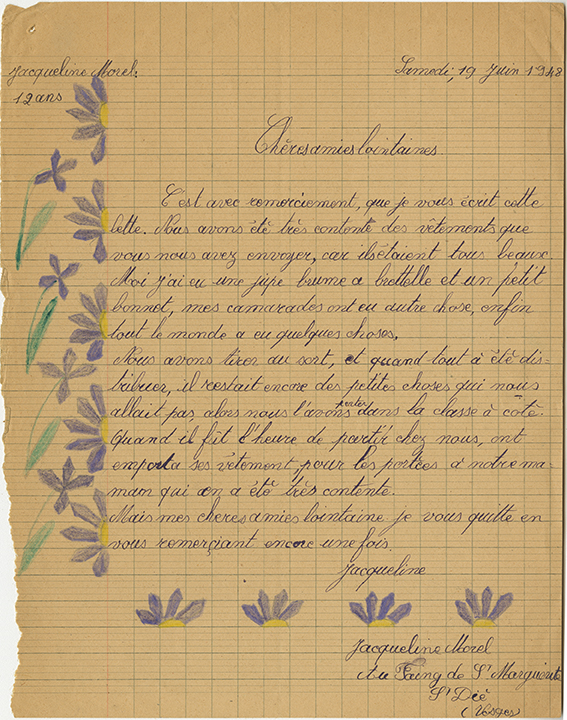 Jacqueline Morel.
12 ans
Samedi, 19 Juin 1948
Chères amies lointaines
C'est avec remerciement, que je vous écrit cette
lette. Nous avons été très contente des vêtements que
vous nous avez envoyer, car ils étaient tous beaux.
Moi j'ai eu une jupe brume a brettelle et un petit
bonnet, mes camarades ont eu autre chose, enfin
tout le monde a eu quelques choses,
Nous avons tirer au sort, et quand tout à été dis-
tribuer, il restait encore des petites choses qui nous
allait pas, alors nous l'avons porter dans la classe à côté.
Quand il fît l'heure de partir chez nous, ont
emporta ses vêtement, pour les portées à notre ma-
man qui en a été très contente.
Mais mes cheres amies lointaine je vous quitte en
vous remerçiant encore une fois.
Jacqueline
Jacqueline Morel
Au Faing de St Marguerite
St Dié
(Vosges